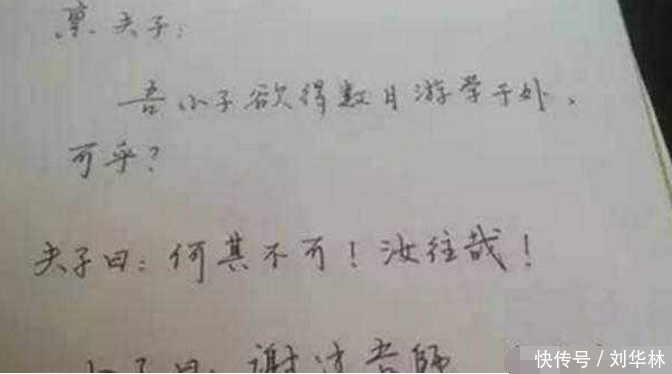 禀夫子：
吾小子欲得数日游学于外，
可乎？
夫子曰：何其不可！汝往哉！
小子曰：谢过老师
快传号／刘华林